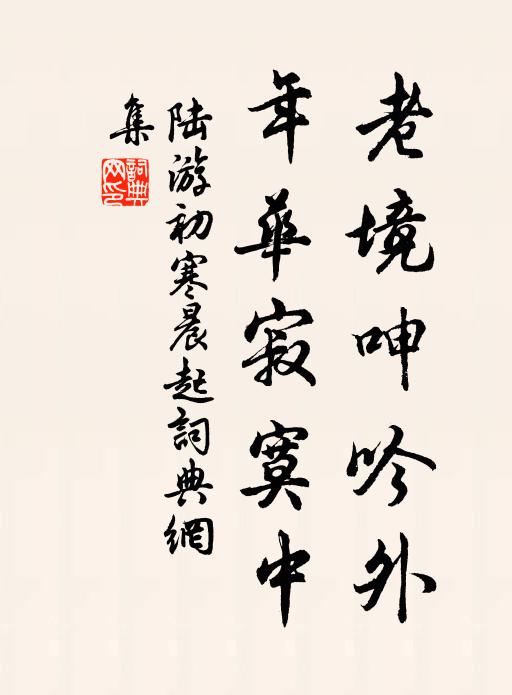 老境呻吟外
年華寂寞中
陸游初寒晨起詞典網
集
詞典
网印